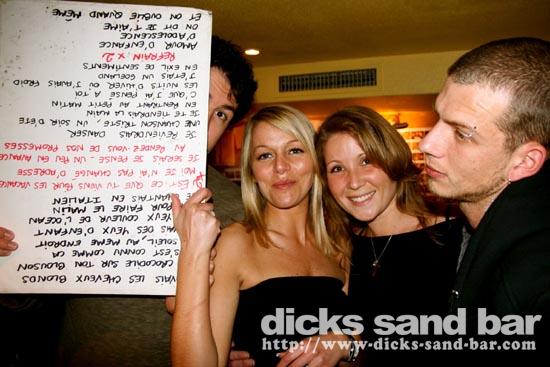 VAIS LES CHEVEUX BLONDS
CROCODILE SUR TON BLOUSON
S'EST CONNU COMME ÇA
SOLEIL, AU MÊME ENDROIT
AVAIS DES YEUX D'ENFANT
YEUX COULEUR DE L'OCEAN
POUR FAIRE LE MALIN
CHANTAIS EN ITALIEN
EST-CE QUE TU VIENS POUR LES VACANCES
MOI JE N'AI PAS CHANGÉ D'ADRESSE
JE SERAI JE PENSE - UN PEU EN AVANCE
AU RENDEZ-VOUS DE NOS PROMESSES
JE REVIENDRAI DANSER
UNE CHANSON TRISTE, UN SOIR
JE TE TIENDRAI LA MAIN
EN RENTRANT AU PETIT MATIN
C'QUE J'AI PENSÉ A TOI
LES NUITS D'HIVER OU J'AVAIS FROID
J'ETAIS UN GOELAND
EN EXIL DE SENTIMENTS
REFRAIN x 2
AMOUR D'ENFANCE
D'ADOLESCENCE
ON SE DIT JE T'AIME
ET ON OUBLIE QUAND MÊME
dicks sand bar
http://www.dicks-sand-bar.com